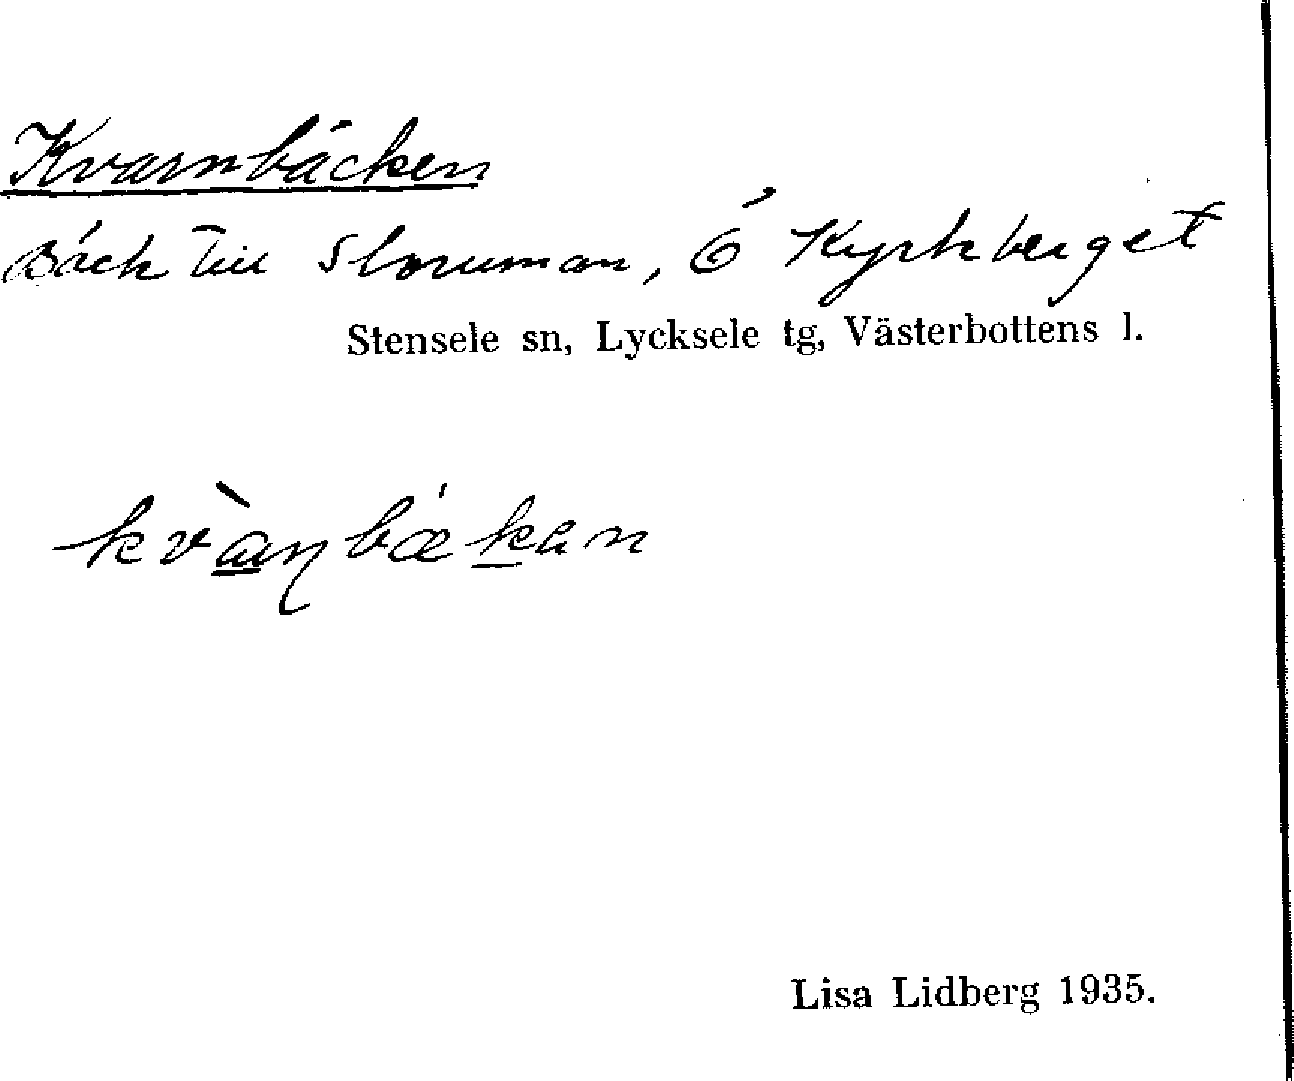 Kvarnbäcken
Bäck till Storuman, Ö Kyrkberget
Stensele sn, Lycksele tg, Västerbottens l.
kvànbǽkan
Lisa Lidberg 1935.